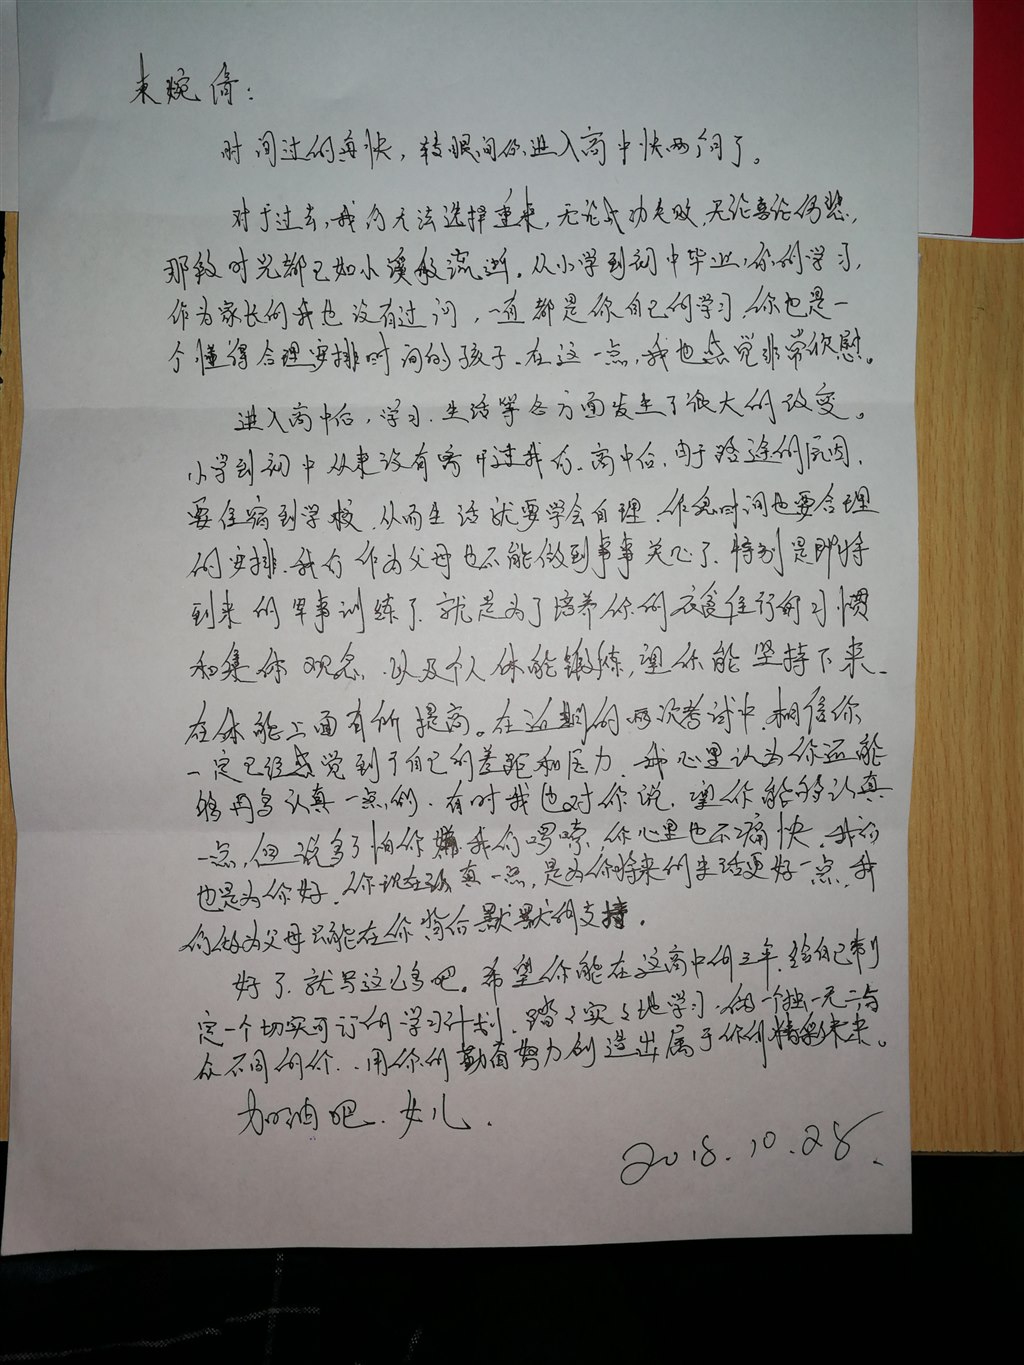 来婉倚：
时间过的每快，转眼间你进入高中快两个月了。
对于过去，我们无法选择重来，无论成功失败，无论喜论伤悲，
那段时光都已如小溪般流逝。从小学到初中毕业，你的学习，
作为家长的我也没有过问，一直都是你自己的学习，你也是一
个懂得合理安排时间的孩子。在这一点，我也感觉非常欣慰。
进入高中后，学习、生活等各方面发生了很大的改变。
小学到初中从来没有离开过我们、高中后，由于路途的原因，
要住宿到学校，从而生活就要学会自理，作息时间也要合理
的安排、我们作为父母也不能做到事事关心了，特别是即将
到来的军事训练了，就是为了培养你的衣食住行的习惯
和集体观念，以及个人体能锻练，望你能坚持下来、
在体能上面有所提高。在近期的两次考试中，相信你
一定已经感觉到了自己的差距和压力，我心里认为你还能
够再多认真一点的、有时我也对你说，望你能够认真
一点，但说多了怕你嫌我们啰嗦，你心里也不痛快，我们
也是为你好，你现在认真一点，是为你将来的生活更好一点，我
们做为父母只能在你背后默默的支持。
好了，就写这么多吧。希望你能在这高中的三年，给自己制
定一个切实可订的学习计划，踏踏实实地学习，做一个独一无二与
众不同的你、用你的勤奋努力创造出属于你的精彩未来。
加油吧、女儿．
2018.10.28.